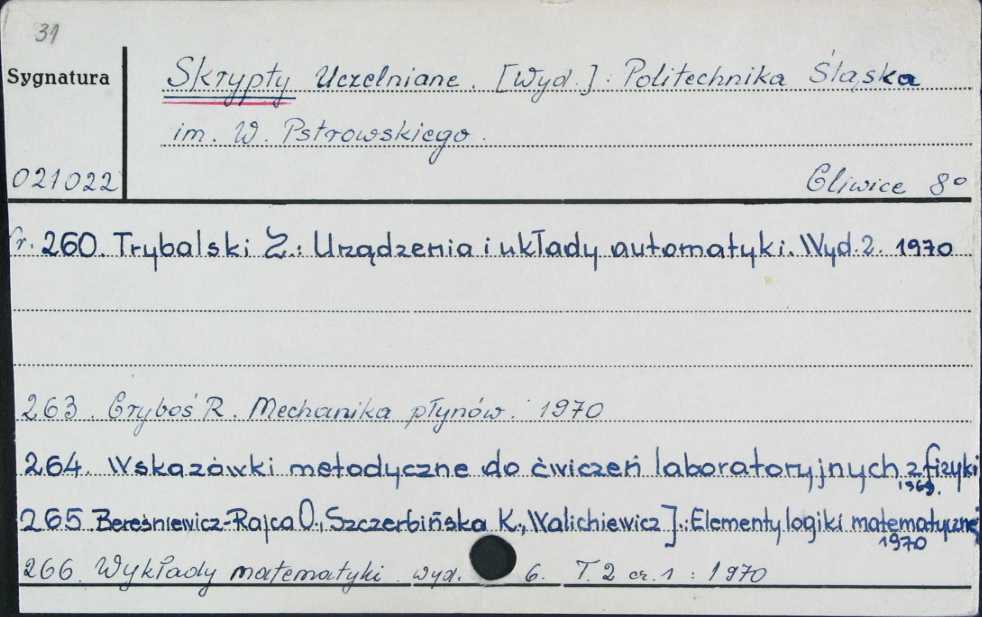 31
Sygnatura
Skrypty Uczelniane. [Wyd.]: Politechnika Śląska
im. W. Pstrowskiego.
021022
Gliwice 8°
nr. 260. Trybalski Z.: Urządzenia i układy automatyki. Wyd. 2. 1970
263. Gryboś R. Mechanika płynów. 1970
264. Wskazówki metodyczne do ćwiczeń laboratoryjnych z fizyki
1969.
265 Bereśniewicz-Rajca O., Szczerbińska K., Walichiewicz J.: Elementy logiki matematycznej
1970
266. Wykłady matematyki. wyd. 6. T. 2 cz. 1: 1970